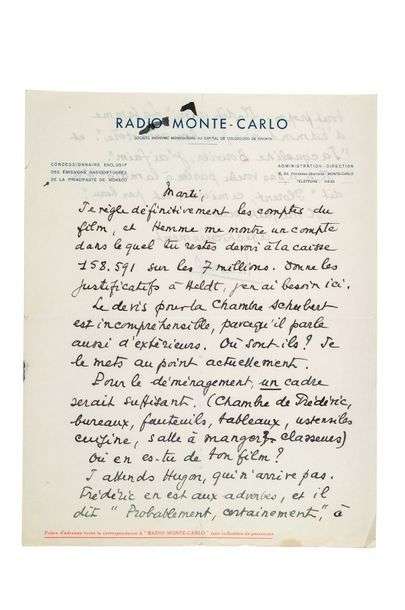 RADIO MONTE-CARLO
CONCESSIONNAIRE EXCLUSIF
DES ÉMISSIONS RADIOPHONIQUES
DE LA PRINCIPAUTÉ DE MONACO
ADMINISTRATION - DIRECTION
Marti,
Je règle définitivement les comptes du
film, et Hemme me montre un compte
dans lequel tu restes devoir à la caisse
158.591 sur les 7 millions. Donne les
justificatifs à Heldt, j'en ai besoin ici.
Le devis pour la Chambre Schubert
est incompréhensible, parcequ'il parle
aussi d'extérieurs. Où sont ils ? Je
le mets au point actuellement.
Pour le déménagement, un cadre
serait suffisant. (Chambre de Frédéric,
bureaux, fauteuils, tableaux, ustensiles
cuisine, salle à manger, classeurs)
Où en es-tu de ton film ?
J'attends Hugon, qui n'arrive pas.
Frédéric en est aux adverbes, et il
dit "Probablement, certainement," à
Prière d'adresser toute la correspondance à "RADIO MONTE-CARLO" sans indication de personne